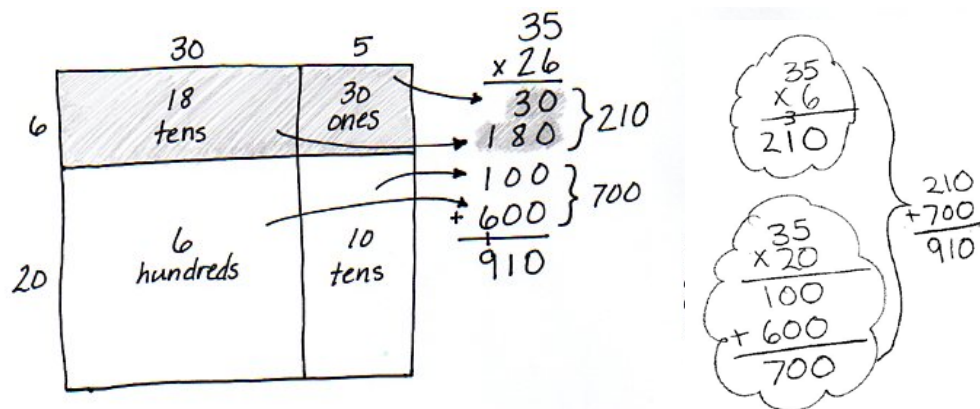 30 5
6 18 tens 30 ones
20 6 hundreds 10 tens
35
x 26
30
180
} 210
100
+ 600
} 700
1
910
35
x 6
3
210
35
x 20
100
+ 600
700
210
+ 700
910